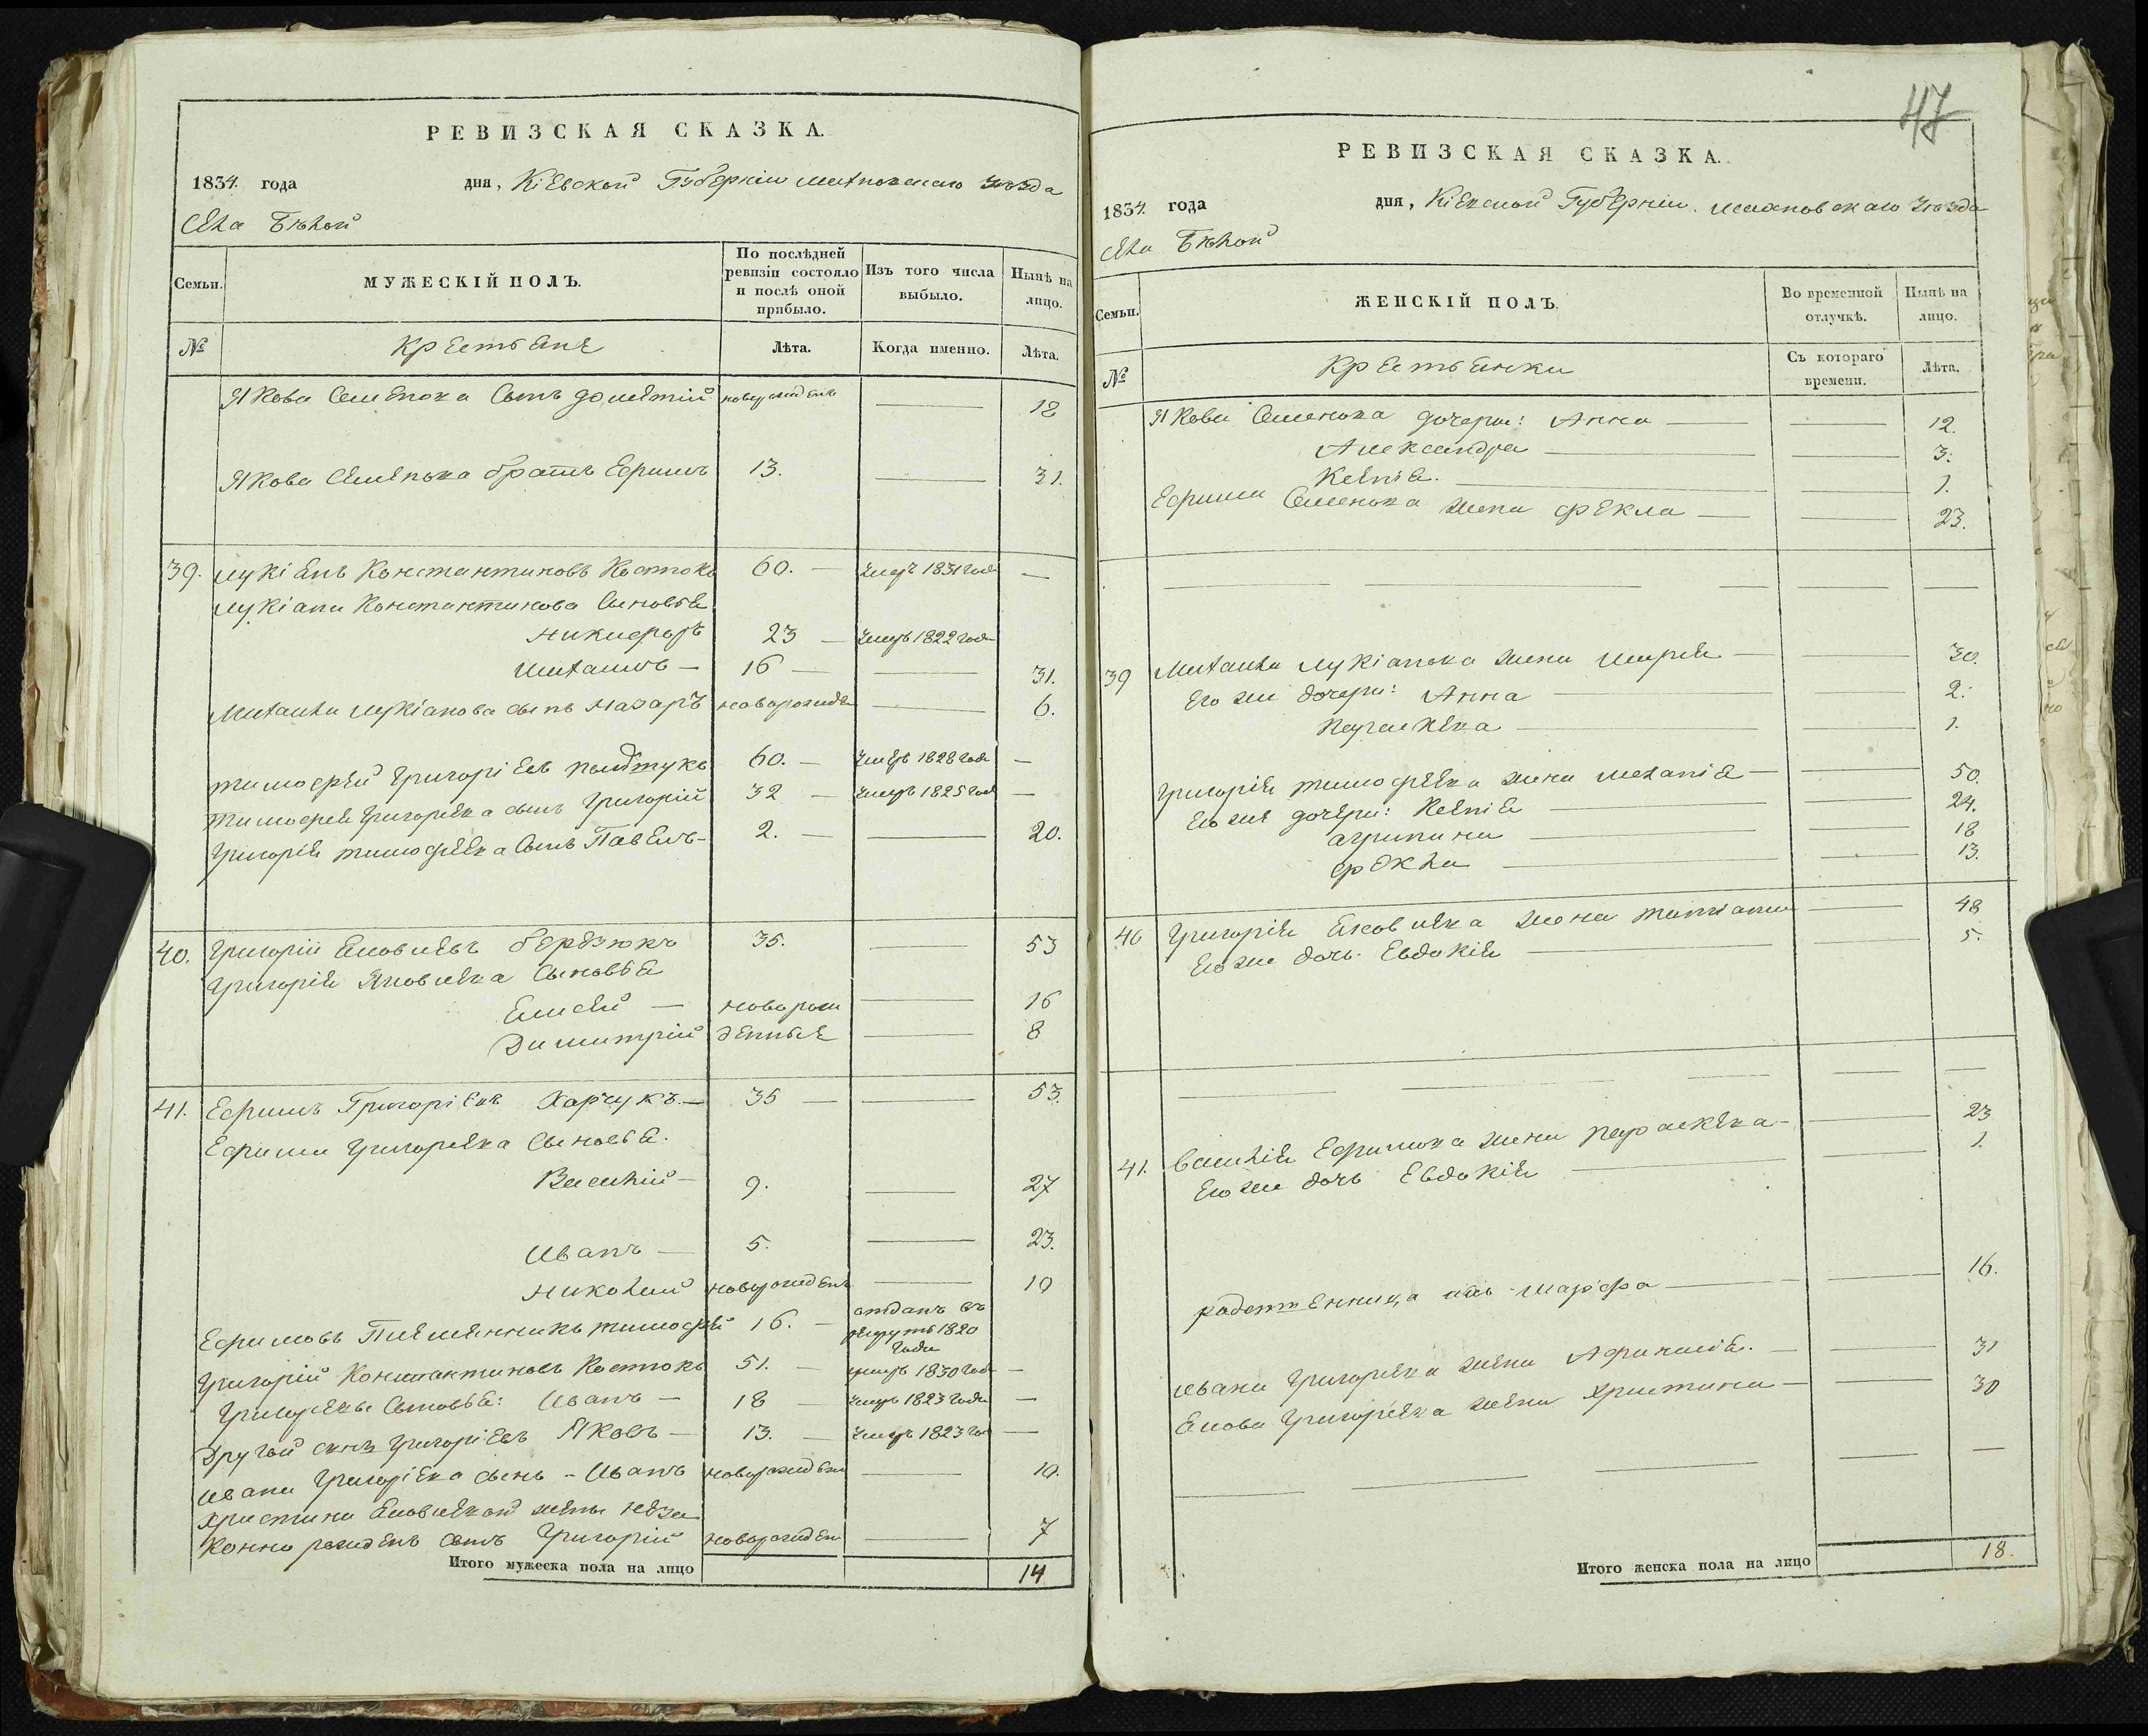 РЕВИЗСКАЯ СКАЗКА.
1834. года дня, Кіевской Губерніи Махновскаго уѣзда
Села Бѣлой
Семьи. МУЖЕСКІЙ ПОЛЪ. По послѣдней ревизіи состояло и послѣ оной прибыло. Изъ того числа выбыло. Нынѣ на лицо.
№ Крестьяне Лѣта. Когда именно. Лѣта.
Якова Семенова Сынъ Дометій новорожденъ 18
Якова Семенова братъ Ефимъ 13. 31.
39. Лукіянъ Константиновъ Костюкъ 60. умеръ 1831 года
Лукіана Константинова Сыновья
Никифоръ 23 умеръ 1822 года
Михаилъ 16 31.
Михаила Лукіанова сынъ Назаръ новорожден 6.
Тимофей Григоріевъ 60. умеръ 1828 года
Тимофея Григорьева сынъ Григорій 32 умеръ 1825 года
Григорія Тимофеева Сынъ Павелъ 2. 20.
40. Григорій Яковлевъ Березюкъ 35. 53
Григорія Яковлева Сыновья
Елисей новорож 16
Димитрій денные 8
41. Ефимъ Григоріевъ Харчукъ 35 53.
Ефима Григорьева Сыновья.
Василій 9. 27
Иванъ 5. 23.
Николай новорожденъ 10
Ефимовъ Племенникъ Тимофей 16. отданъ въ рекруты 1820 года
Григорій Константиновъ Костюкъ 51. умеръ 1830 года
Григорьевы Сыновья: Иванъ 18 умеръ 1823 года
Другой сынъ Григоріевъ Яковъ 13. умеръ 1823 го
Ивана Григоріева сынъ Иванъ новорожден 10.
Христины Яковлевой жены неза
конно рожденъ сынъ Григорій новорожден 7
Итого мужеска пола на лицо 14
47
РЕВИЗСКАЯ СКАЗКА.
1834. года дня, Кіевской Губерніи. Махновскаго уѣзда
Села Бѣлой
Семьи. ЖЕНСКІЙ ПОЛЪ. Во временной отлучкѣ. Нынѣ на лицо.
№ Крестьянки Съ котораго времени. Лѣта.
Якова Семенова дочери: Анна 12.
Александра 3.
Ксенія. 1.
Ефима Семенова жена Фекла 23.
39 Михаила Лукіанова жена Марія 30.
Его же дочери: Анна 2.
Параскева 1.
Григорія Тимофеева жена Меланія 50.
Его же дочери: Ксенія 24.
Агрипина 18
Фекла 13.
40 Григорія Яковлева жена Татіана 48
Его же дочь Евдокія 5.
41. Василія Ефимова жена Параскева 23
Его же дочь Евдокія 1.
Марфа 16.
Ивана Григорьева жена Афинасія. 31
Якова Григорьева жена Христина 30
Итого женска пола на лицо 18.